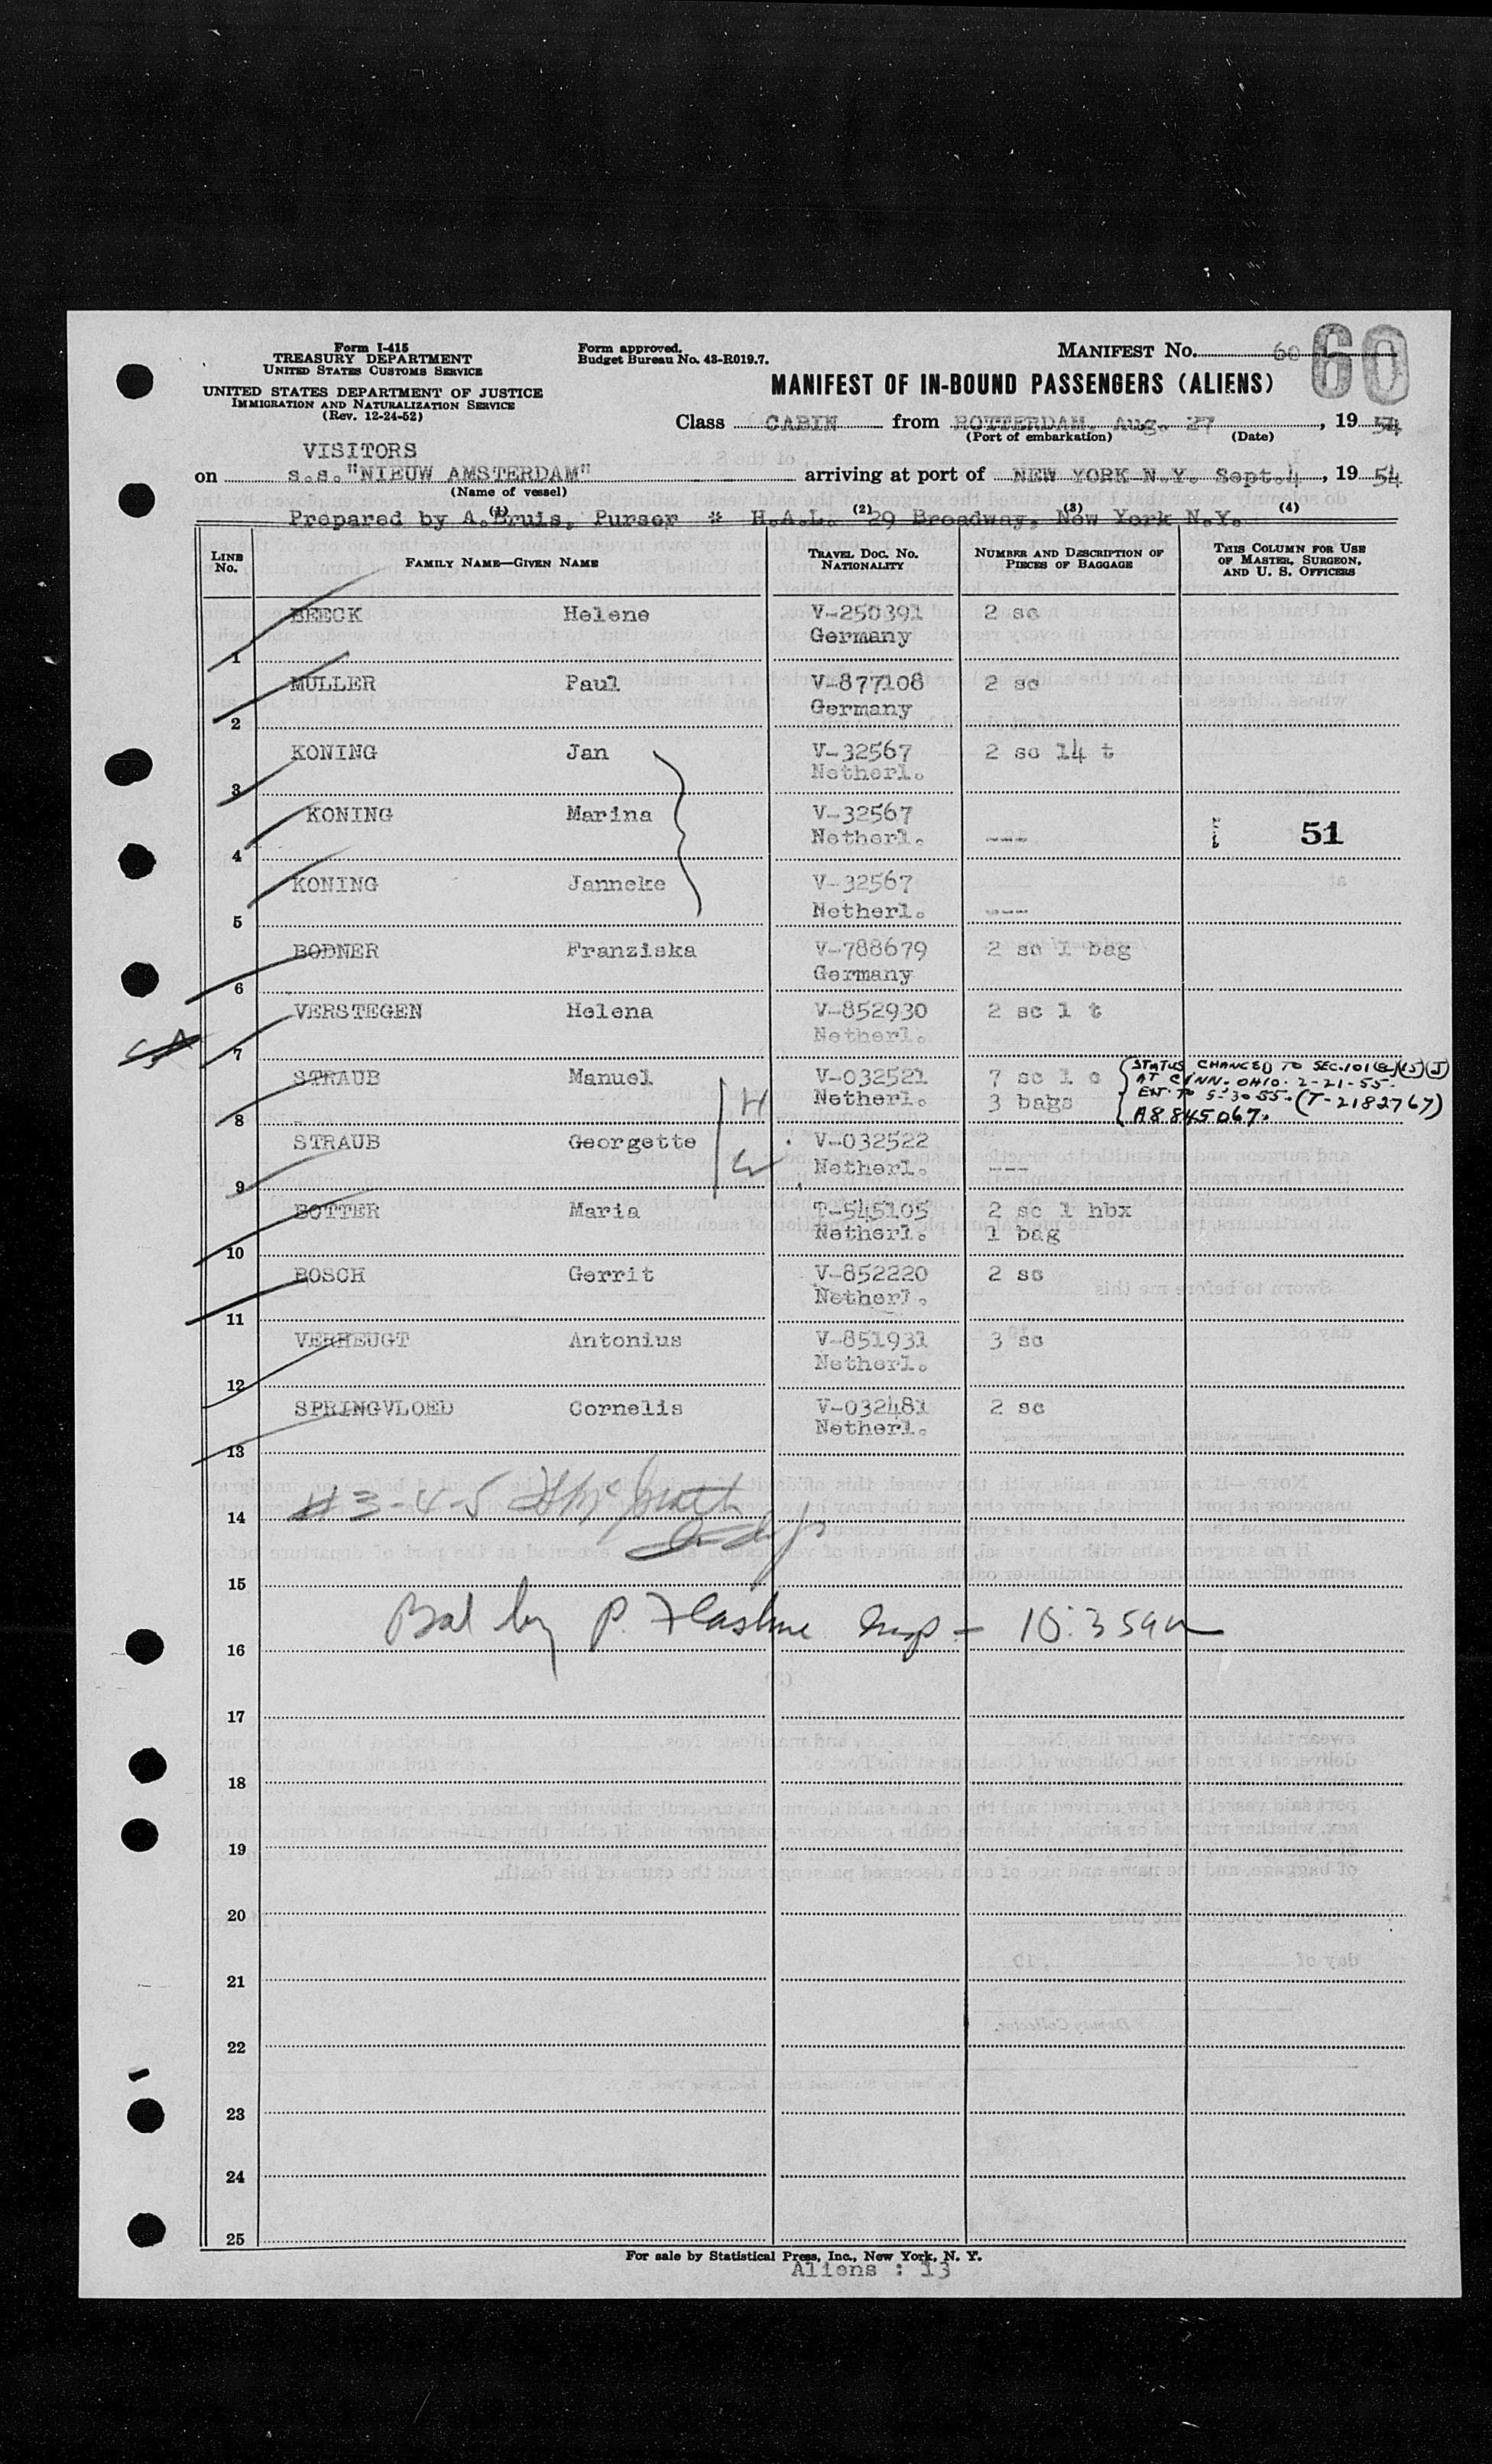 Form I-415
TREASURY DEPARTMENT
UNITED STATES CUSTOMS SERVICE
UNITED STATES DEPARTMENT OF JUSTICE
IMMIGRATION AND NATURALIZATION SERVICE
(Rev. 12-24-52)
Form approved.
Budget Bureau No. 43-R019.7.
MANIFEST No. 60
60
MANIFEST OF IN-BOUND PASSENGERS (ALIENS)
Class CABIN from ROTTERDAM, Aug. 27, 1954
(Port of embarkation) (Date)
VISITORS
on s.s. "NIEUW AMSTERDAM" arriving at port of NEW YORK N.Y. Sept.4, 1954
(Name of vessel)
Prepared by A.Bruis, Purser * H.A.L. 29 Broadway, New York N.Y.
(1) (2) (3) (4)
LINE No. FAMILY NAME—GIVEN NAME TRAVEL DOC. No. NATIONALITY NUMBER AND DESCRIPTION OF PIECES OF BAGGAGE THIS COLUMN FOR USE OF MASTER, SURGEON, AND U. S. OFFICERS
BEECK Helene V-250391 2 sc
1 Germany
MULLER Paul V-877108 2 sc
2 Germany
KONING Jan V-32567 2 sc 14 t
3 Netherl.
KONING Marina V-32567
4 Netherl. --- 51
KONING Janneke V-32567
5 Netherl. ---
BODNER Franziska V-788679 2 sc 1 bag
6 Germany
VERSTEGEN Helena V-852930 2 sc 1 t
7 Netherl.
STRAUB Manuel V-032521 7 sc 1 c
8 Netherl. 3 bags
H
STATUS CHANGED TO SEC.101(a)(15)(J)
AT CINN. OHIO. 2-21-55.
EXT. TO 5-30-55. (T-2182767)
A8 845067.
STRAUB Georgette V-032522
9 W Netherl. ---
BOTTER Maria T-545105 2 sc 1 hbx
10 Netherl. 1 bag
BOSCH Gerrit V-852220 2 sc
11 Netherl.
VERHEUGT Antonius V-851931 3 sc
12 Netherl.
SPRINGVLOED Cornelis V-032481 2 sc
13 Netherl.
14 #3-4-5
15
Bal by P. Insp - 10:35am
16
17
18
19
20
21
22
23
24
25
For sale by Statistical Press, Inc., New York, N. Y.
Aliens : 13